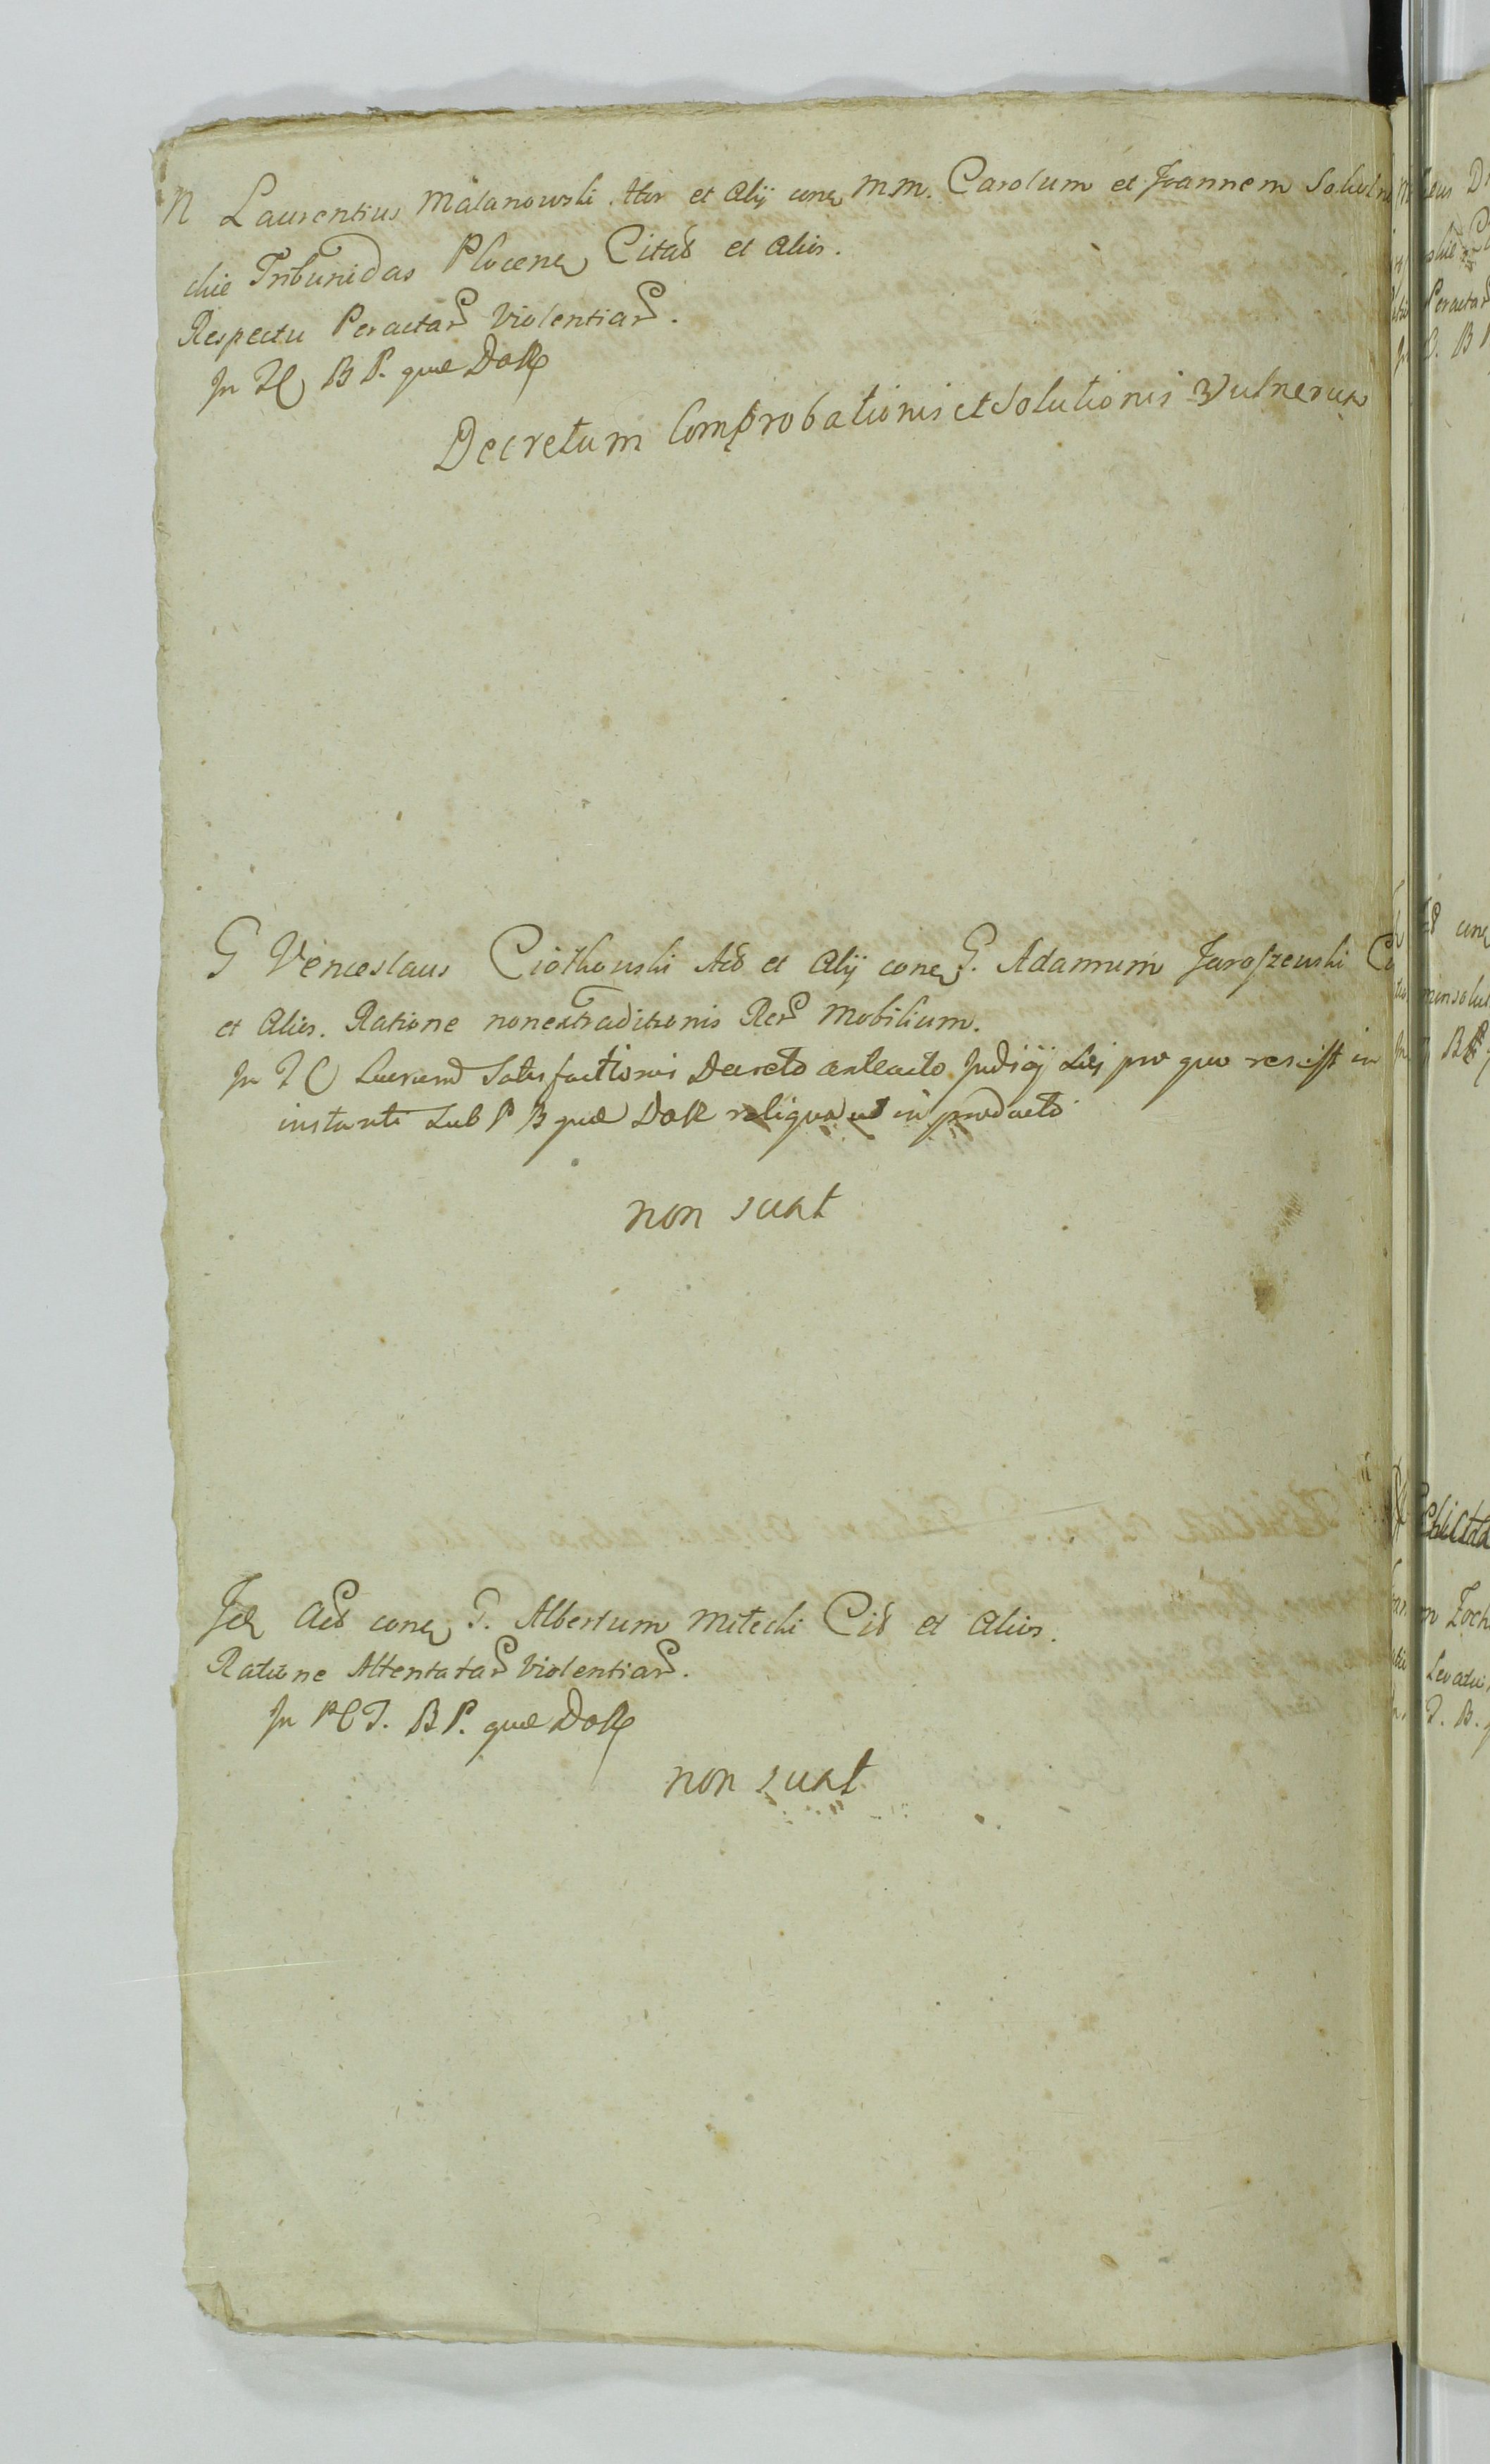 N Laurentius Malanowski Ator et Alij conq MM. Carolum et Joannem Sokoln
chie Tribunidas Plocenq Citas et Alios.
Respectu Peractar Violentiar.
In TC B P. quæ DoR
Decretum Comprobationis et Solutionis Vulnerum
G Venceslaus Ciotkouski Acs et Alij conq G. Adamum Jaroszewski
et Alios. Ratione nonextraditionis Rer Mobilium.
In TC Luerund Satisfactionis Decreto anteacto Judicij pro quo rescisst in
instanti Sub P B quæ DoR reliqua ut in producto
non sunt
Id Acs conq G. Albertum Mitecki Cis et Alios.
Ratione Attentatar Violentiar.
In PCT. B P. quæ DoR
non sunt